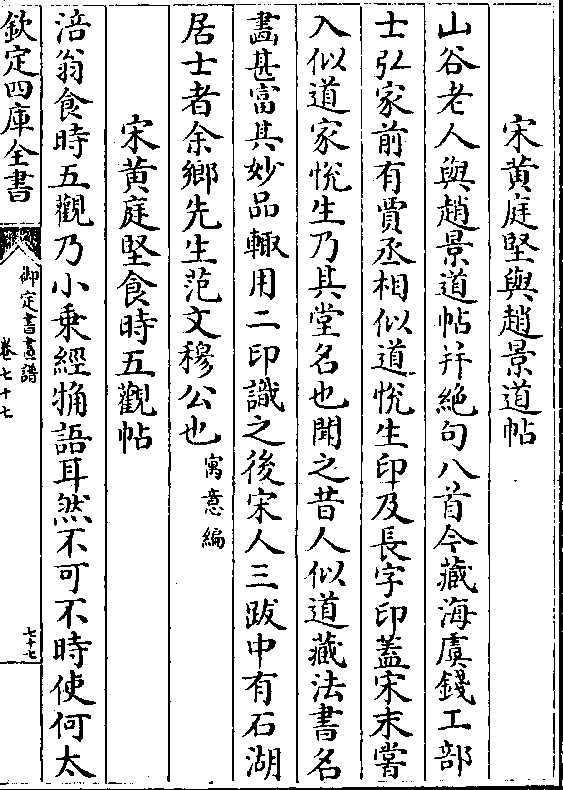 宋黄庭堅與趙景道帖
山谷老人與趙景道帖并絶句八首今藏海虞錢工部
士弘家前有賈丞相似道悅生印及長字印蓋宋末嘗
入似道家悅生乃其堂名也聞之昔人似道藏法書名
畵甚富其妙品輙用二印識之後宋人三跋中有石湖
居士者余鄉先生范文穆公也寓意編
宋黄庭堅食時五觀帖
涪翁食時五觀乃小乗經觕語耳然不可不時使何太
欽定四庫全書
御定書畫譜
卷七十七
七十七